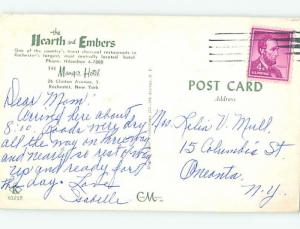 the
Hearth and Embers
One of the country's finest charcoal restaurants in
Rochester's largest, most centrally located hotel
Phone: HAmilton 6-7800
THE Manger Hotel
26 Clinton Avenue, S
Rochester, New York
POST CARD
Address
Dear Mom:
Arriving here about
8:10. Roads very dry
all the way on thruway
and nearly so rest of way
up and ready for
the day. Love
Isabelle
Mrs. Lelia V. Mull
15 Columbia St.
Oneonta
N.Y.
K